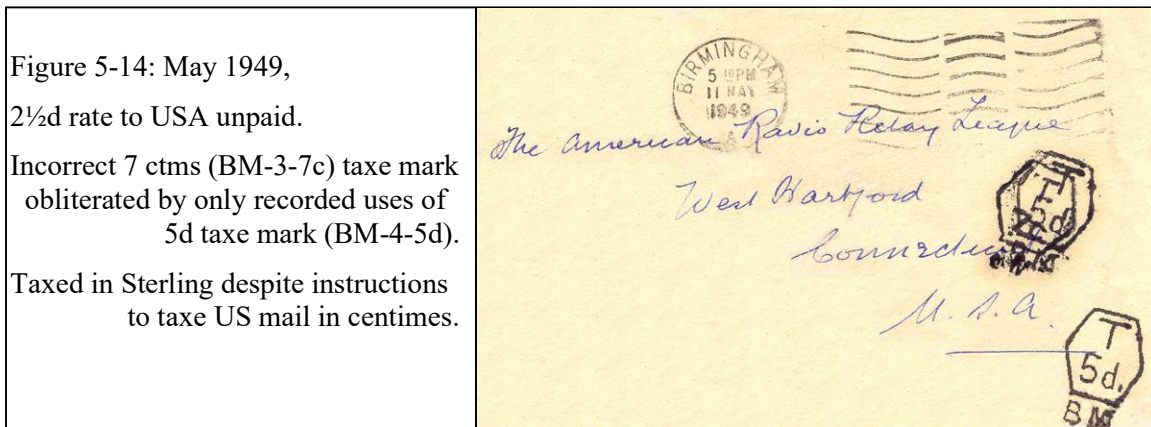 Figure 5-14: May 1949,
2½d rate to USA unpaid.
Incorrect 7 ctms (BM-3-7c) taxe mark
obliterated by only recorded uses of
5d taxe mark (BM-4-5d).
Taxed in Sterling despite instructions
to taxe US mail in centimes.
BIRMINGHAM
PM
11 MAY
1949
The American Radio Relay League
West Hartford
Connecticut
U.S.A.
T
5d.
T
5d.
BM